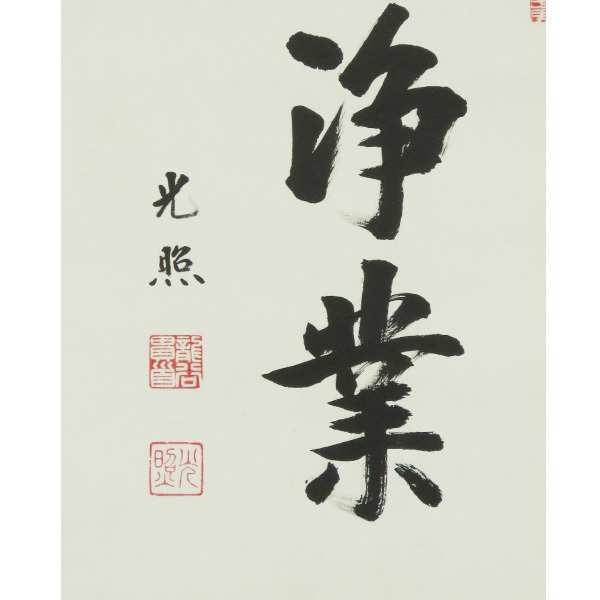 浄業
光照
光照